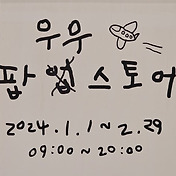 우우
팝업스토어
2024.1.1~2.29
09:00~20:00